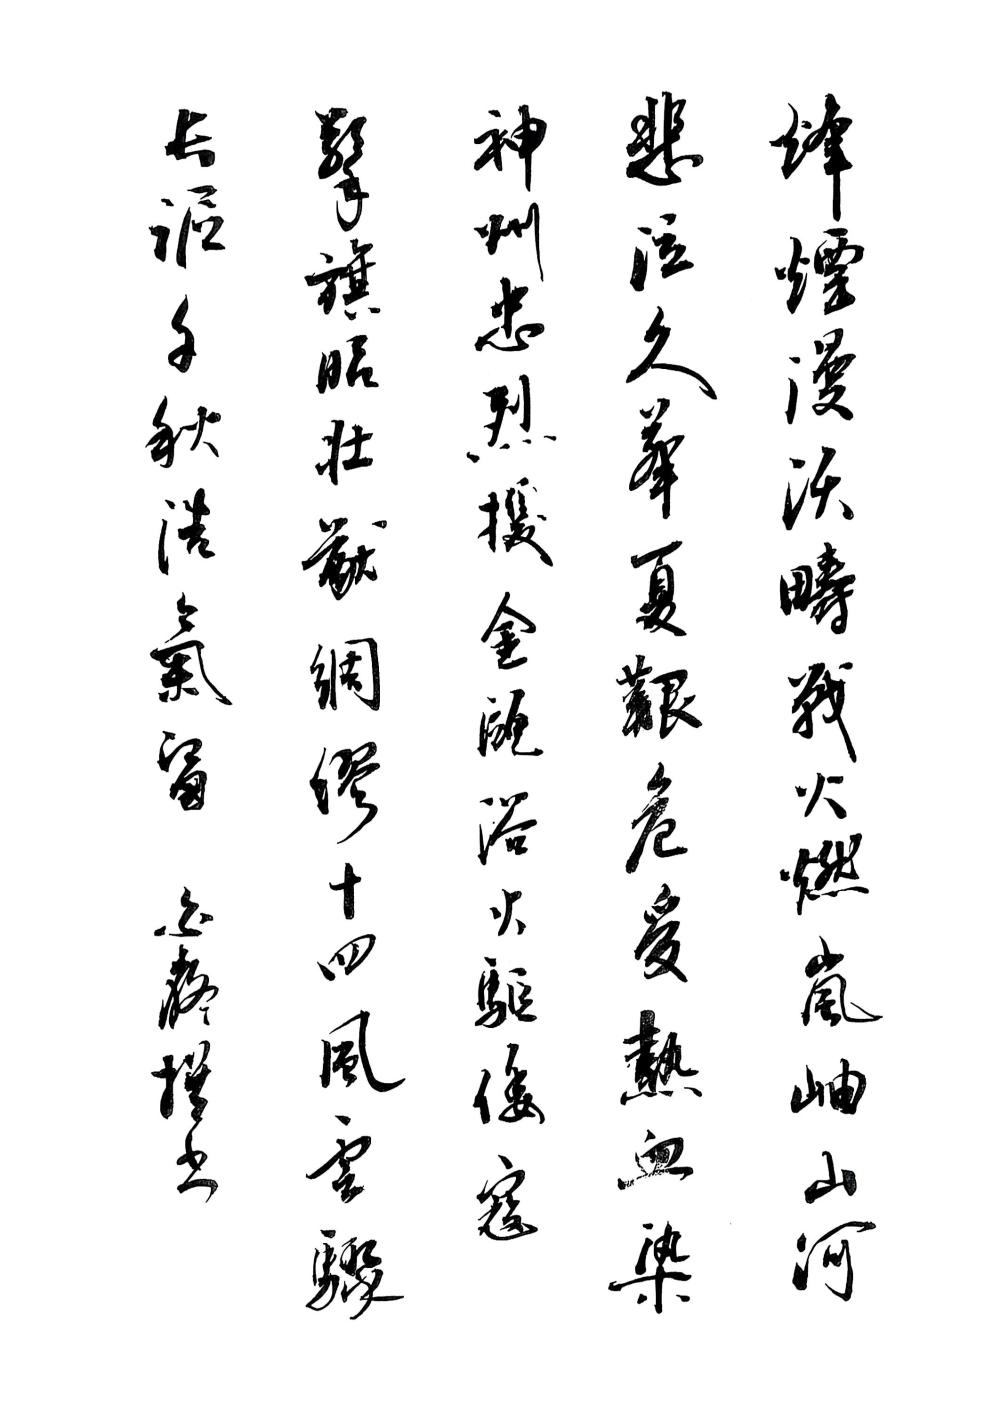 烽煙漫沃疇戰火燃嵐岫山河
悲泣久華夏艱危受熱血染
神州忠烈援金甌浴火驅倭寇
擎旗昭壯猷綢繆十四風雲驟
長謳千秋浩氣留 撰書